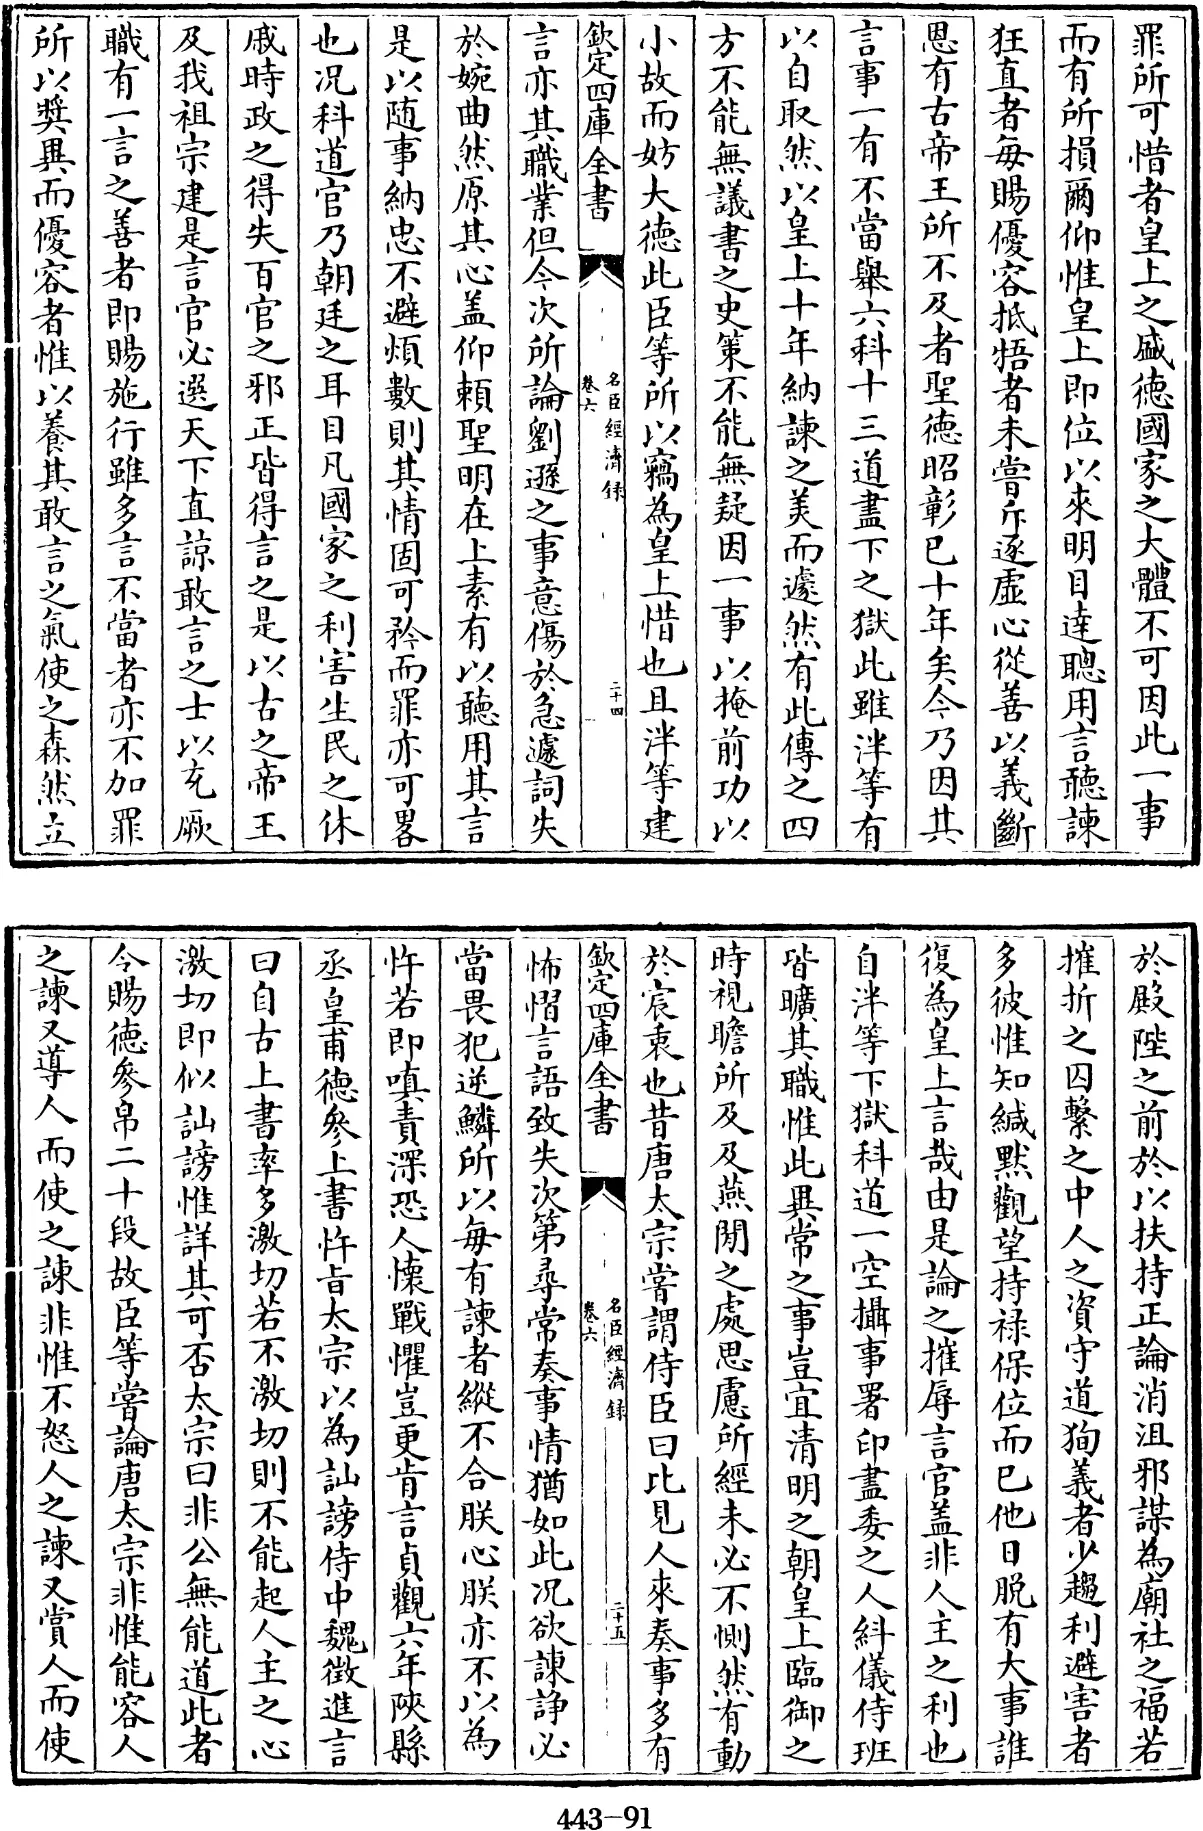 罪所可惜者皇上之盛德國家之大體不可因此一事
而有所損爾仰惟皇上即位以來明目達聰用言聽諫
狂直者每賜優容抵牾者未嘗斥逐虛心從善以義斷
恩有古帝王所不及者聖德昭彰已十年矣今乃因其
言事一有不當舉六科十三道盡下之獄此雖泮等有
以自取然以皇上十年納諫之美而遽然有此傳之四
方不能無議書之史策不能無疑因一事以掩前功以
小故而妨大德此臣等所以竊為皇上惜也且泮等建
欽定四庫全書
名臣經濟録
卷六
二十四
言亦其職業但今次所論劉遜之事意傷於急遽詞失
於婉曲然原其心盖仰賴聖明在上素有以聽用其言
是以随事納忠不避煩數則其情固可矜而罪亦可畧
也况科道官乃朝廷之耳目凡國家之利害生民之休
戚時政之得失百官之邪正皆得言之是以古之帝王
及我祖宗建是言官必選天下直諒敢言之士以充厥
職有一言之善者即賜施行雖多言不當者亦不加罪
所以奬異而優容者惟以養其敢言之氣使之森然立
於殿陛之前於以扶持正論消沮邪謀為廟社之福若
摧折之囚繫之中人之資守道狥義者少趨利避害者
多彼惟知緘黙觀望持禄保位而已他日脱有大事誰
復為皇上言哉由是論之摧辱言官盖非人主之利也
自泮等下獄科道一空攝事署印盡委之人糾儀侍班
皆曠其職惟此異常之事豈宜清明之朝皇上臨御之
時視瞻所及及燕閒之處思慮所經未必不惻然有動
於宸衷也昔唐太宗嘗謂侍臣曰比見人來奏事多有
欽定四庫全書
名臣經濟録
卷六
二十五
怖慴言語致失次第尋常奏事情猶如此况欲諫諍必
當畏犯逆鱗所以每有諫者縱不合朕心朕亦不以為
忤若即嗔責深恐人懷戰懼豈更肯言貞觀六年陜縣
丞皇甫德參上書忤旨太宗以為訕謗侍中魏徴進言
曰自古上書率多激切若不激切則不能起人主之心
激切即似訕謗惟詳其可否太宗曰非公無能道此者
令賜德參帛二十段故臣等嘗論唐太宗非惟能容人
之諫又導人而使之諫非惟不怒人之諫又賞人而使
443-91